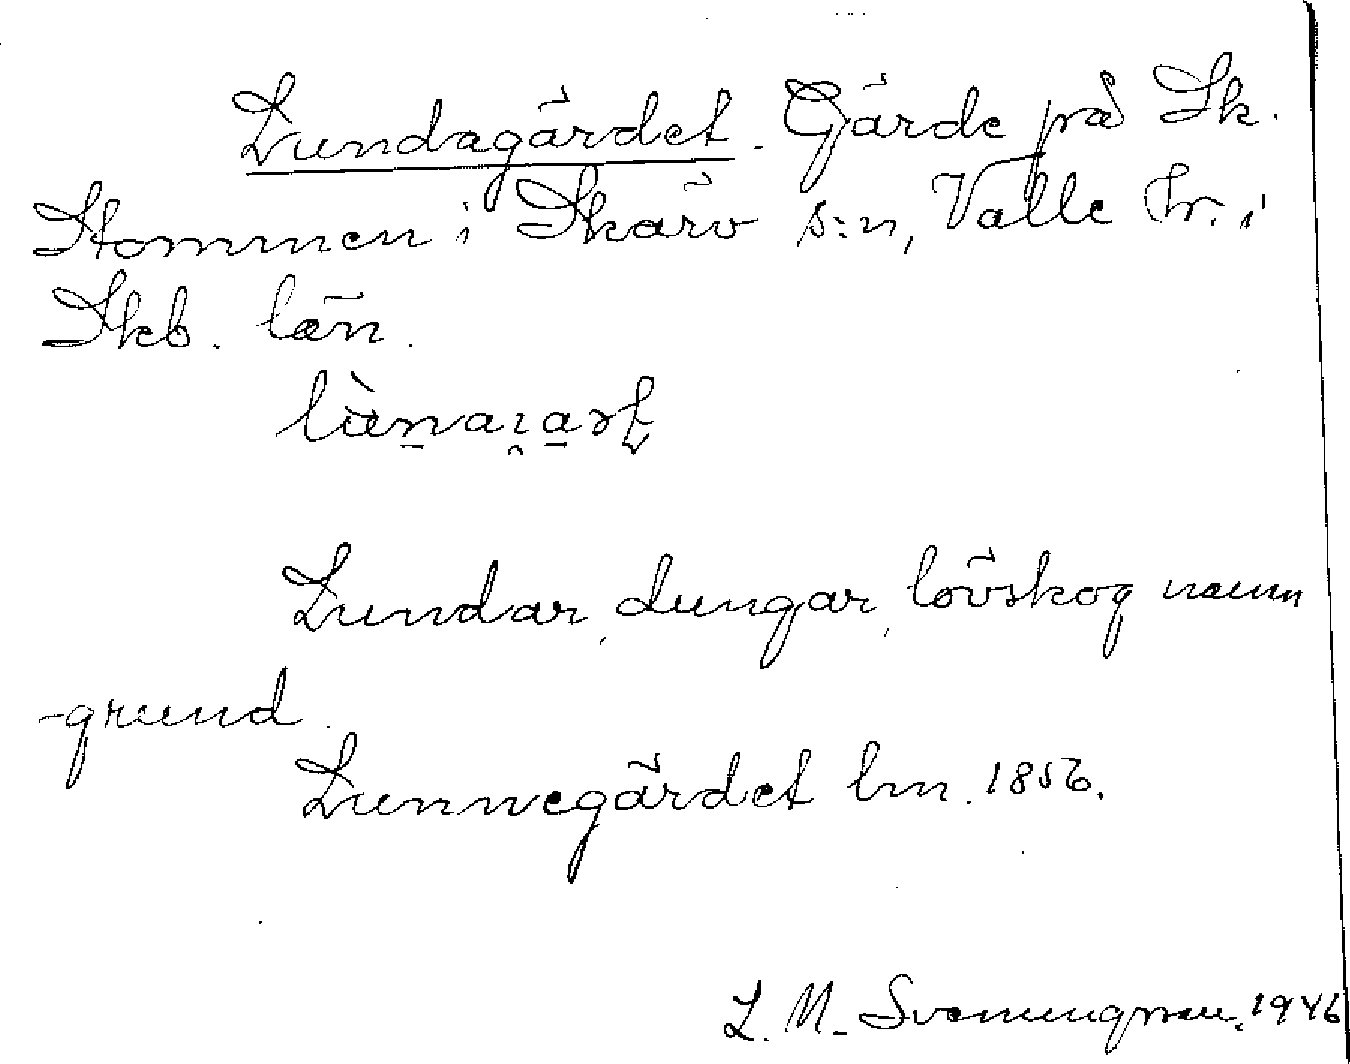 Lundagärdet. Gärde på Sk.
Stommen i Skärv s:n, Valle hr. i
Skb. län.
Lundar, dungar, lövskog namn
-grund.
Lunnegärdet lm. 1856.
L. M. Svenungsson. 1946